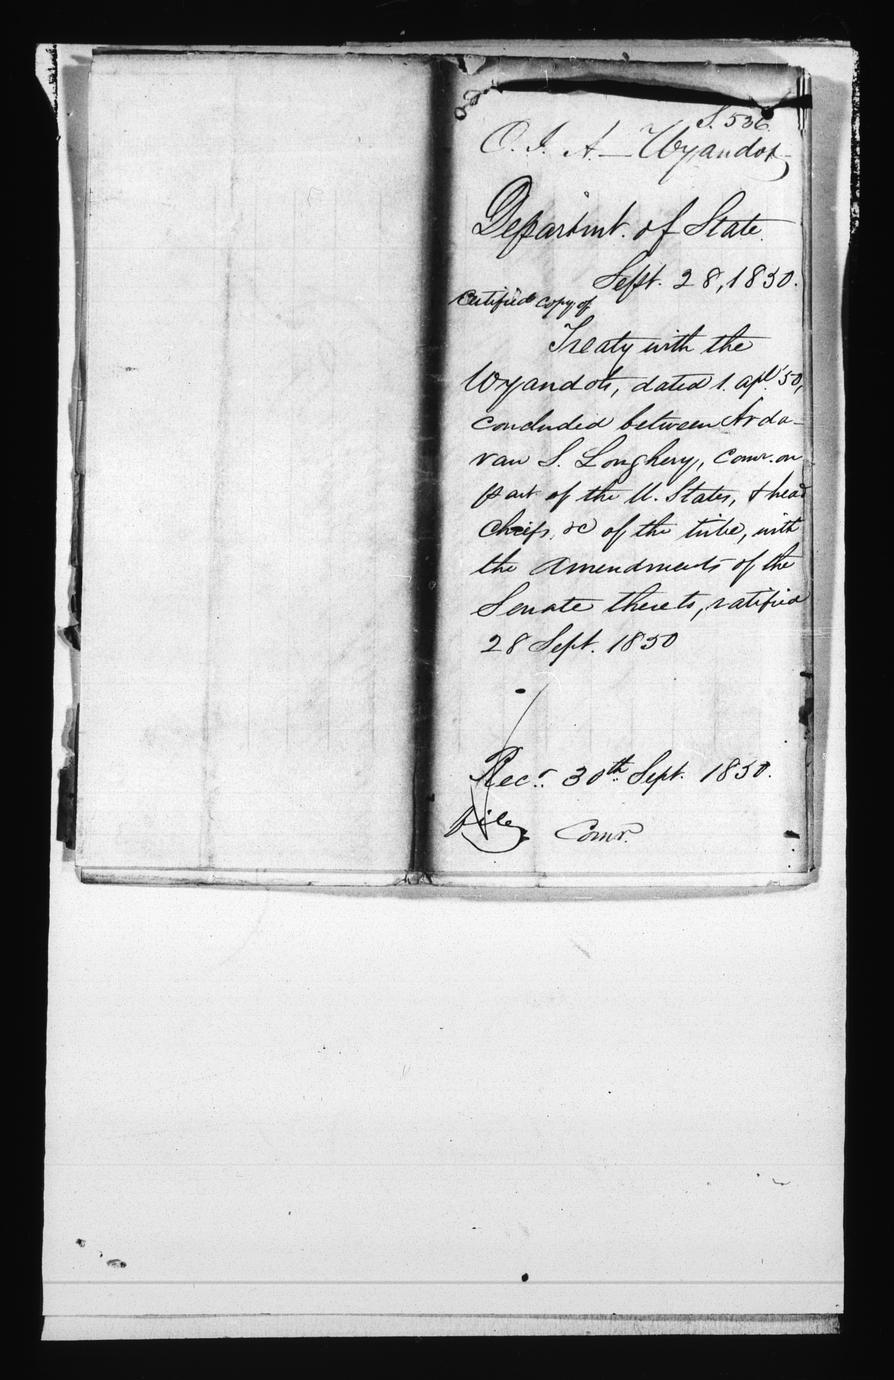 S. 536
O. I. A. — Wyandot
Departmt. of State.
Sept. 28, 1850.
Certified copy of
Treaty with the
Wyandots, dated 1. apl. '50,
concluded between Arda-
van S. Loughery, Comr. on
part of the U. States, & head
Chiefs, &c of the tribe, with
the amendments of the
Senate thereto, ratified
28 Sept. 1850
Recd. 30th Sept. 1850.
file
Comr.